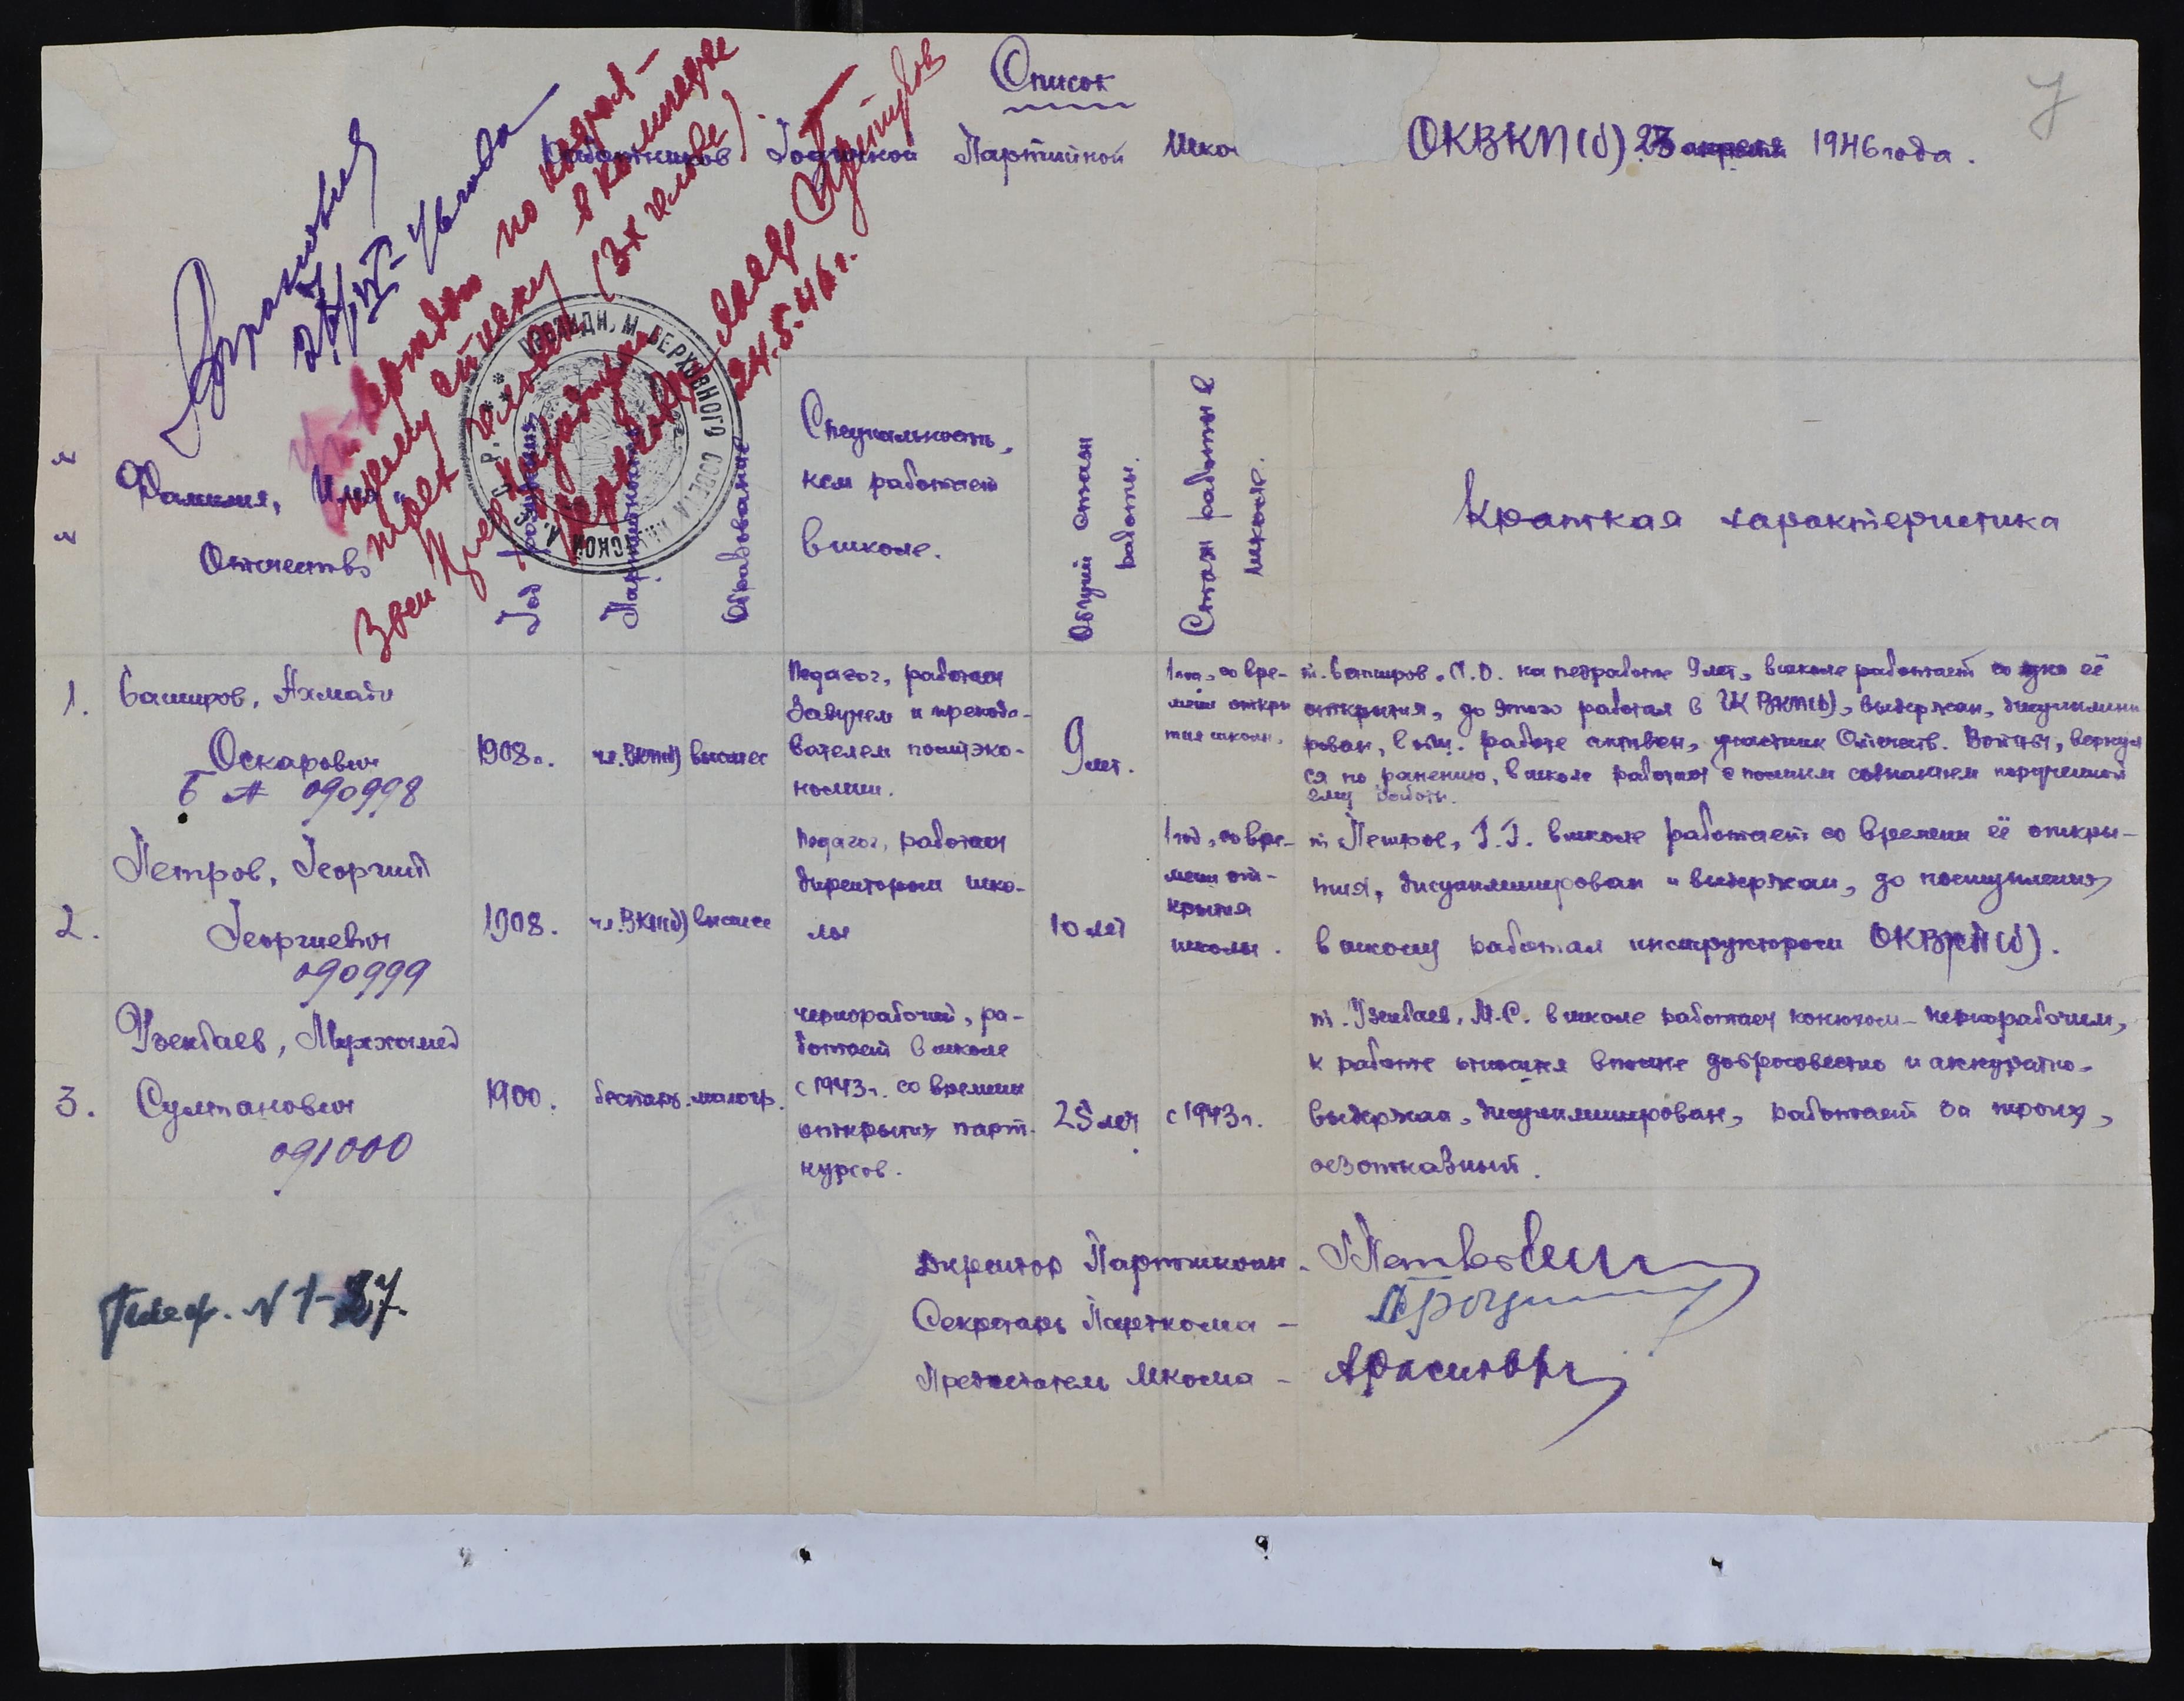 Список
работников Годичной Партийной Шко ОКВКП(б) 23 апреля 1946 года.
по кадров-
в количестве
трех человек (3х человек).
24.5.46 г.
ПРЕЗИДИ. М. ВЕРХОВНОГО СОВЕТА
№ №
Фамилия, Имя и
Отчество
Год рождения
Партийность
Образование
Специальность,
кем работает
в школе.
Общий стаж
работы.
Стаж работы в
школе.
Краткая характеристика
1. Баширов, Ахмат
Оскарович
Б А 090998
1908 г.
чл. ВКП(б)
высшее
Педагог, работает
Завучем и препода-
вателем политэко-
номии.
9 лет.
1 год, со вре-
мени откры
тия школы.
т. Баширов, А.О. на педработе 9 лет, в школе работает со дня её
открытия, до этого работал в ЦК ВКП(б), выдержан, дисциплини
рован, в общ. работе активен, участник Отечеств. Войны, вернул
ся по ранению, в школе работает с полным сознанием порученной
ему работы.
2. Петров, Георгий
Георгиевич
090999
1908.
чл. ВКП(б)
высшее
Педагог, работает
директором шко-
лы
10 лет
1 год, со вре-
мени от-
крытия
школы.
т. Петров, Г.Г. в школе работает со времени её откры-
тия, дисциплинирован и выдержан, до поступления
в школу работал инструктором ОКВКП(б).
3. Узенбаев, Мухамед
Султанович
091000
1900.
беспарт.
малогр.
чернорабочий, ра-
ботает в школе
с 1943 г. со времени
открытия парт.
курсов.
25 лет
с 1943 г.
т. Узенбаев, М.С. в школе работает конюхом-чернорабочим,
к работе относится вполне добросовестно и аккуратно.
выдержан, дисциплинирован, работает за троих,
безотказный.
Директор Партшколы -
Секретарь Парткома -
Председатель Мкома -
Телеф. № 1-37.